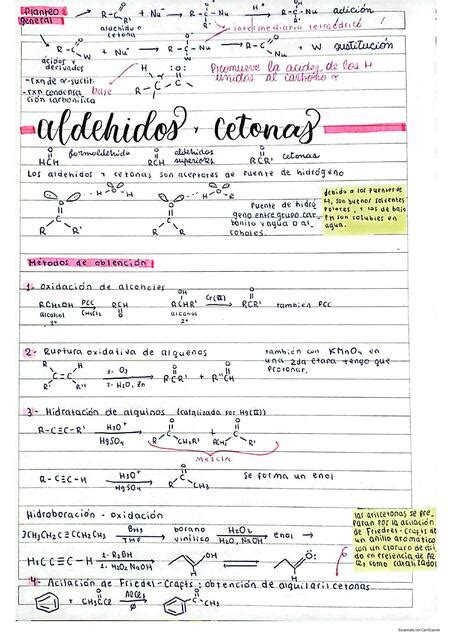 Planteo general
R-C-R + Nu⁻ → R-C-R → R-C-R adición
aldehído o cetona
intermediario tetraédrico
R-C-W + Nu⁻ → R-C-Nu → R-C-Nu + W sustitución
ácidos y derivados
-rxn de α-sustit.
-rxn condensación carbonílica
base
Promueve la acidez de los H unidos al carbono α
aldehidos y cetonas
HCH formaldehído
RCH aldehídos superiores
RCR' cetonas
Los aldehídos y cetonas son aceptores de puente de hidrógeno
Puente de hidrógeno entre grupo carbonilo y agua o alcoholes.
debido a los puentes de H, son buenos solventes polares, y los de bajo PM son solubles en agua.
Métodos de obtención
1. Oxidación de alcoholes
RCH₂OH PCC CH₂Cl₂ RCH
alcohol 1°
RCHR' Cr(VI) RCR' también PCC
alcohol 2°
2- Ruptura oxidativa de alquenos
1. O₃
2. H₂O, Zn
RCR' + R"CH
también con KMnO₄ en una 2da etapa tengo que protonar.
3- Hidratación de alquinos (catalizada por Hg(II))
R-C≡C-R' H₃O⁺ HgSO₄ R CH₂R' + RCH₂ R'
mezcla
R-C≡C-H H₃O⁺ HgSO₄ R CH₃ se forma un enol
Hidroboración - oxidación
CH₃CH₂C≡CCH₂CH₃ BH₃ THF borano vinílico H₂O₂ H₂O, NaOH enol →
H₃C C≡C-H 1. R₂BH 2. H₂O₂, NaOH OH O:
las arilcetonas se preparan por la acilación de Friedel-Crafts de un anillo aromático con un cloruro de ácido en presencia de AlCl₃ como catalizador
4- Acilación de Friedel-Crafts: obtención de alquilarilcetonas
+ CH₃CCl AlCl₃ CCH₃
Escaneado con CamScanner